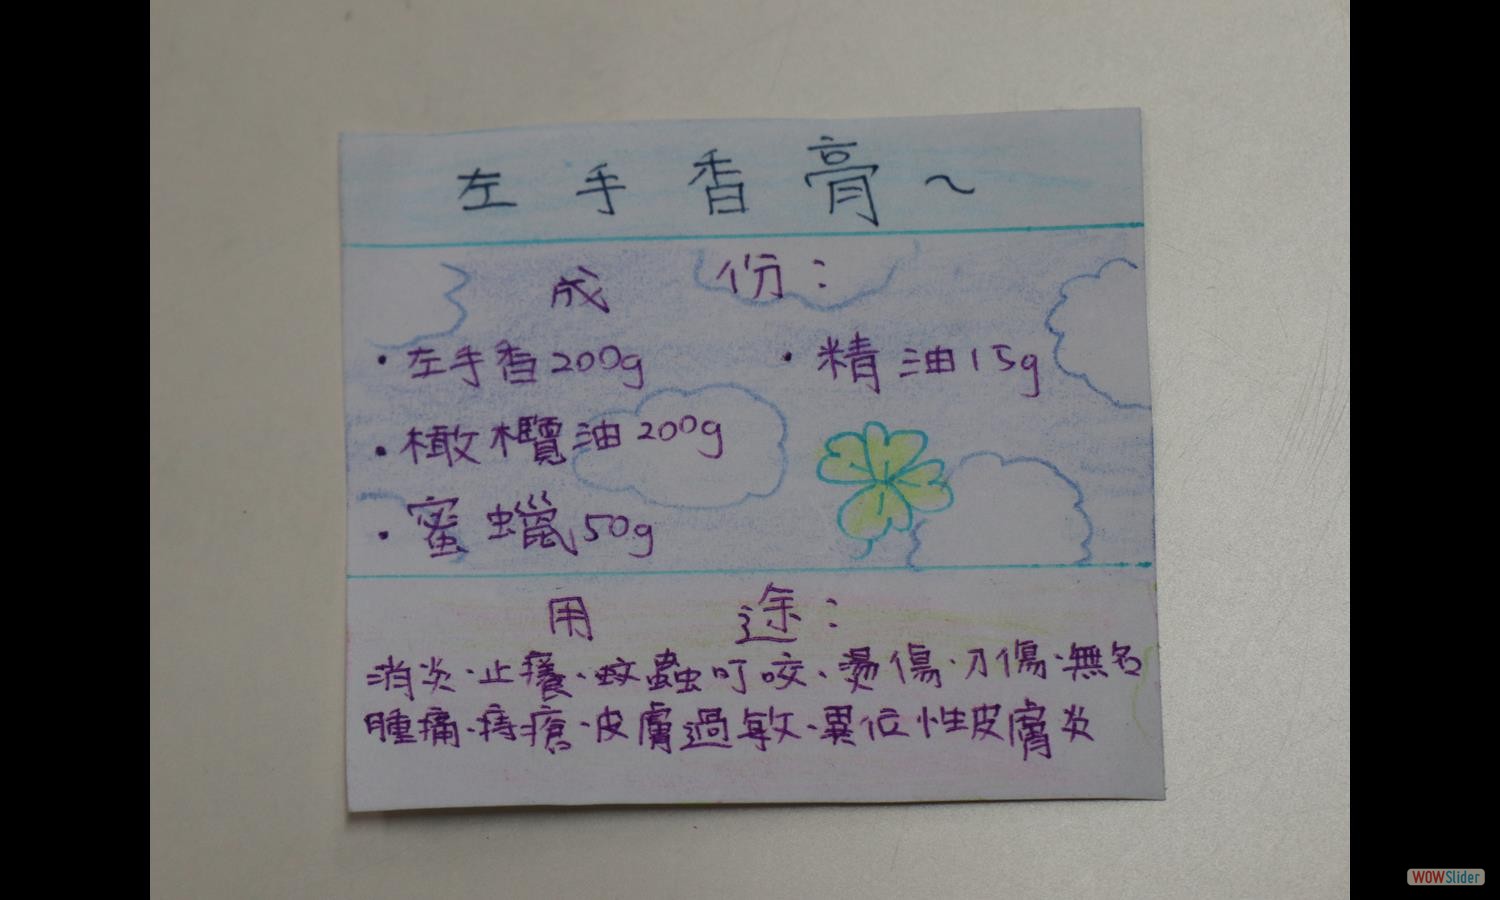 左手香膏~
成份：
・左手香200g
・精油15g
・橄欖油200g
・蜜蠟50g
用途：
消炎、止癢、蚊蟲叮咬、燙傷、刀傷、無名
腫痛、痔瘡、皮膚過敏、異位性皮膚炎
WOWSlider